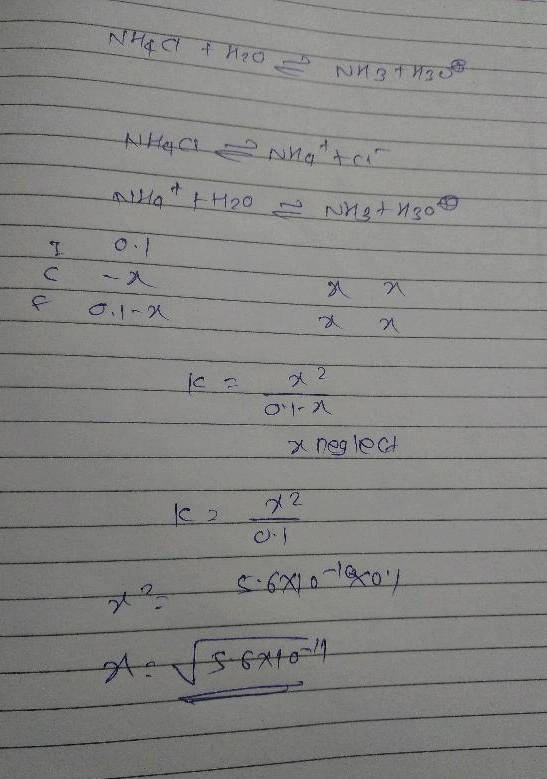 NH4Cl + H2O ⇌ NH3 + H3O⊕
NH4Cl ⇌ NH4+ + Cl-
NH4+ + H2O ⇌ NH3 + H3O⊕
I 0.1
C -x x x
E 0.1-x x x
K = x2
0.1-x
x neglect
K = x2
0.1
x2 = 5.6x10-10x0.1
x = √5.6x10-11